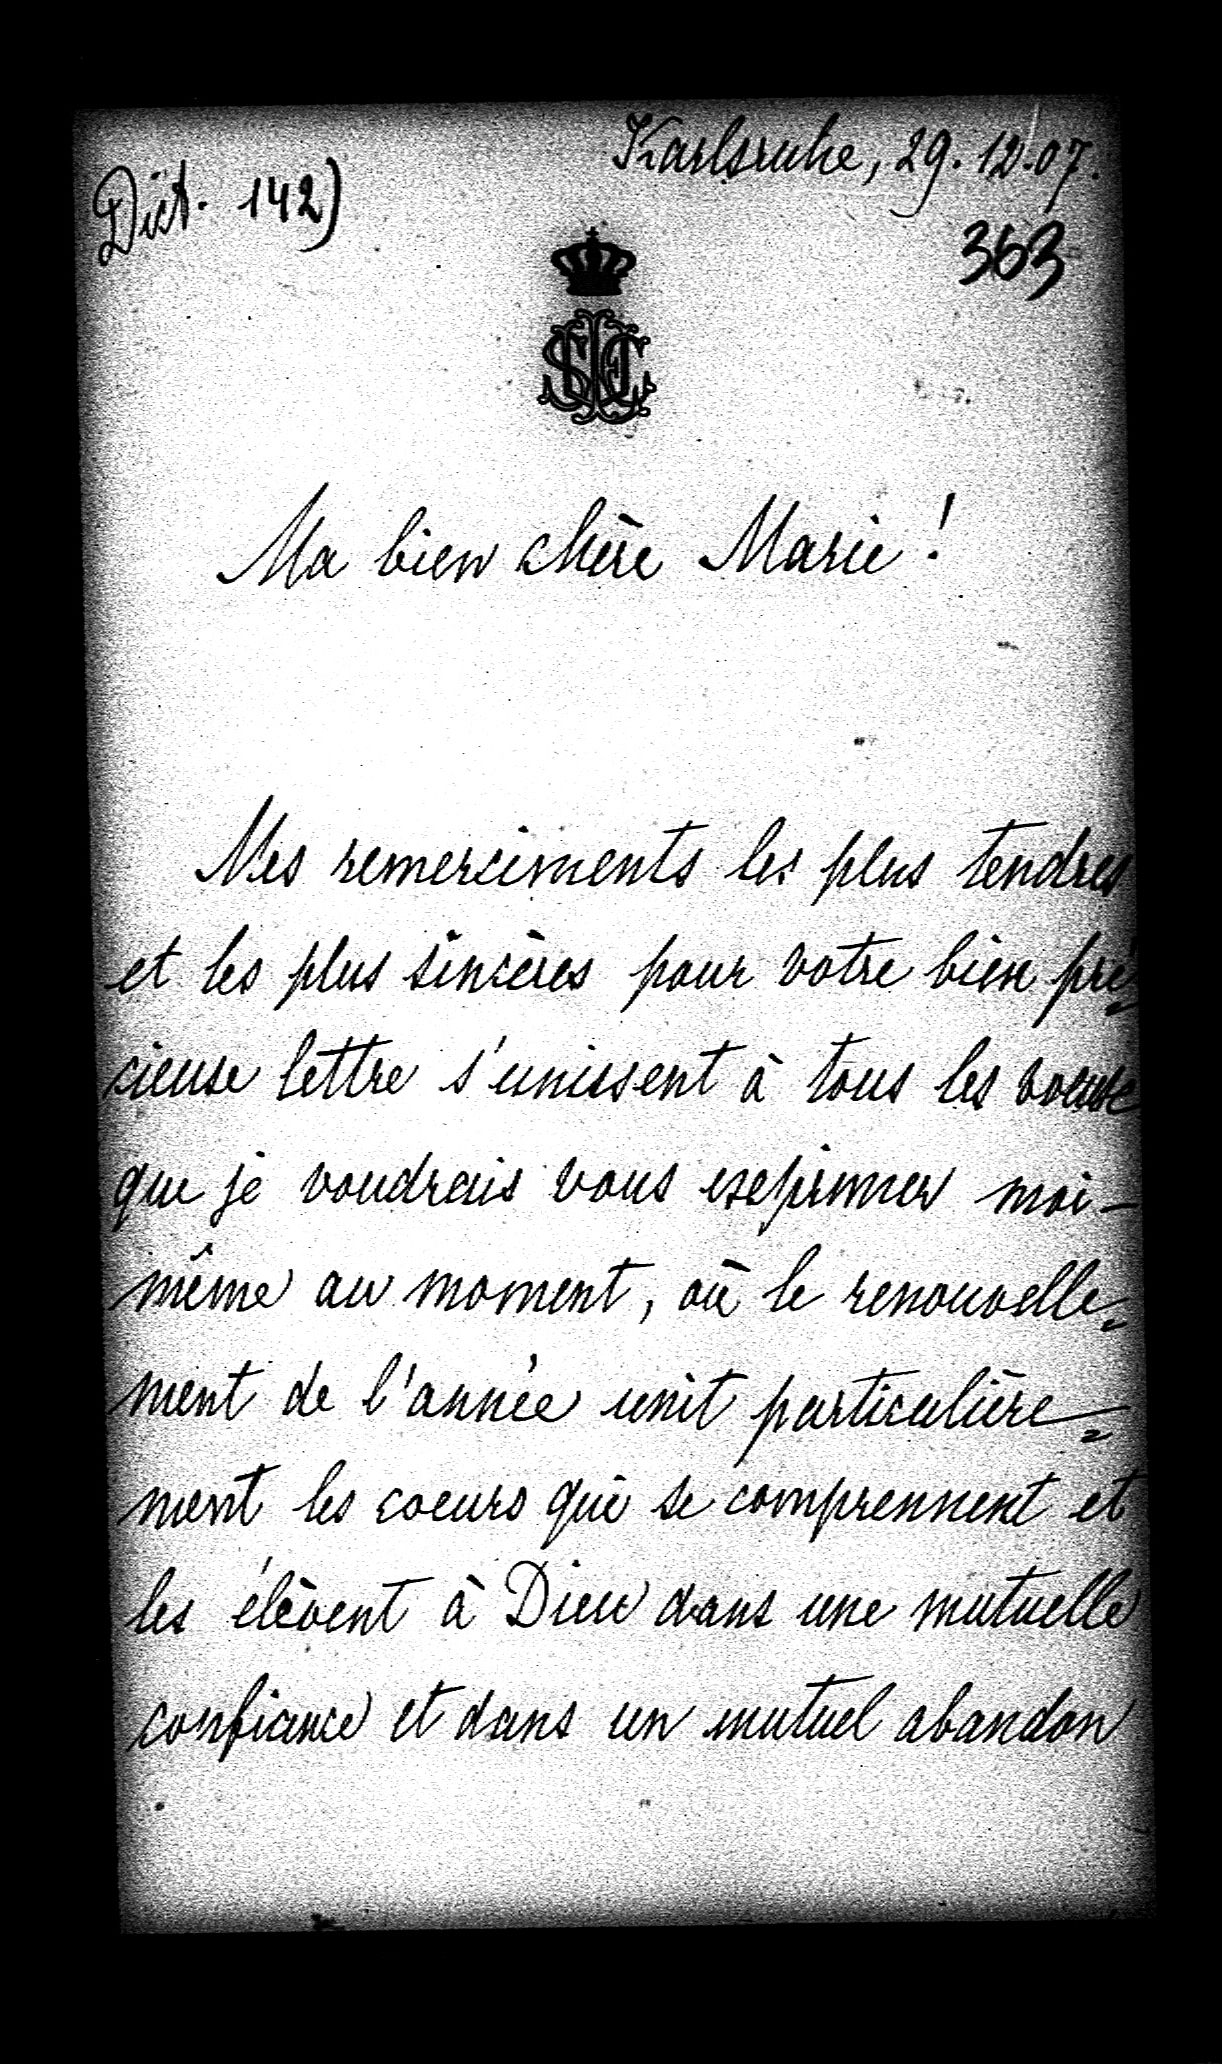 Karlsruhe, 29.12.07.
Dict. 142)
353
Ma bien chère Marie!
Mes remerciments les plus tendres
et les plus sincères pour votre bien pré=
cieuse lettre s'unissent à tous les voeux
que je voudrais vous exprimer moi-
même au moment, où le renouvelle=
ment de l'année unit particulière=
ment les coeurs qui se comprennent et
les élèvent à Dieu dans une mutuelle
confiance et dans un mutuel abandon